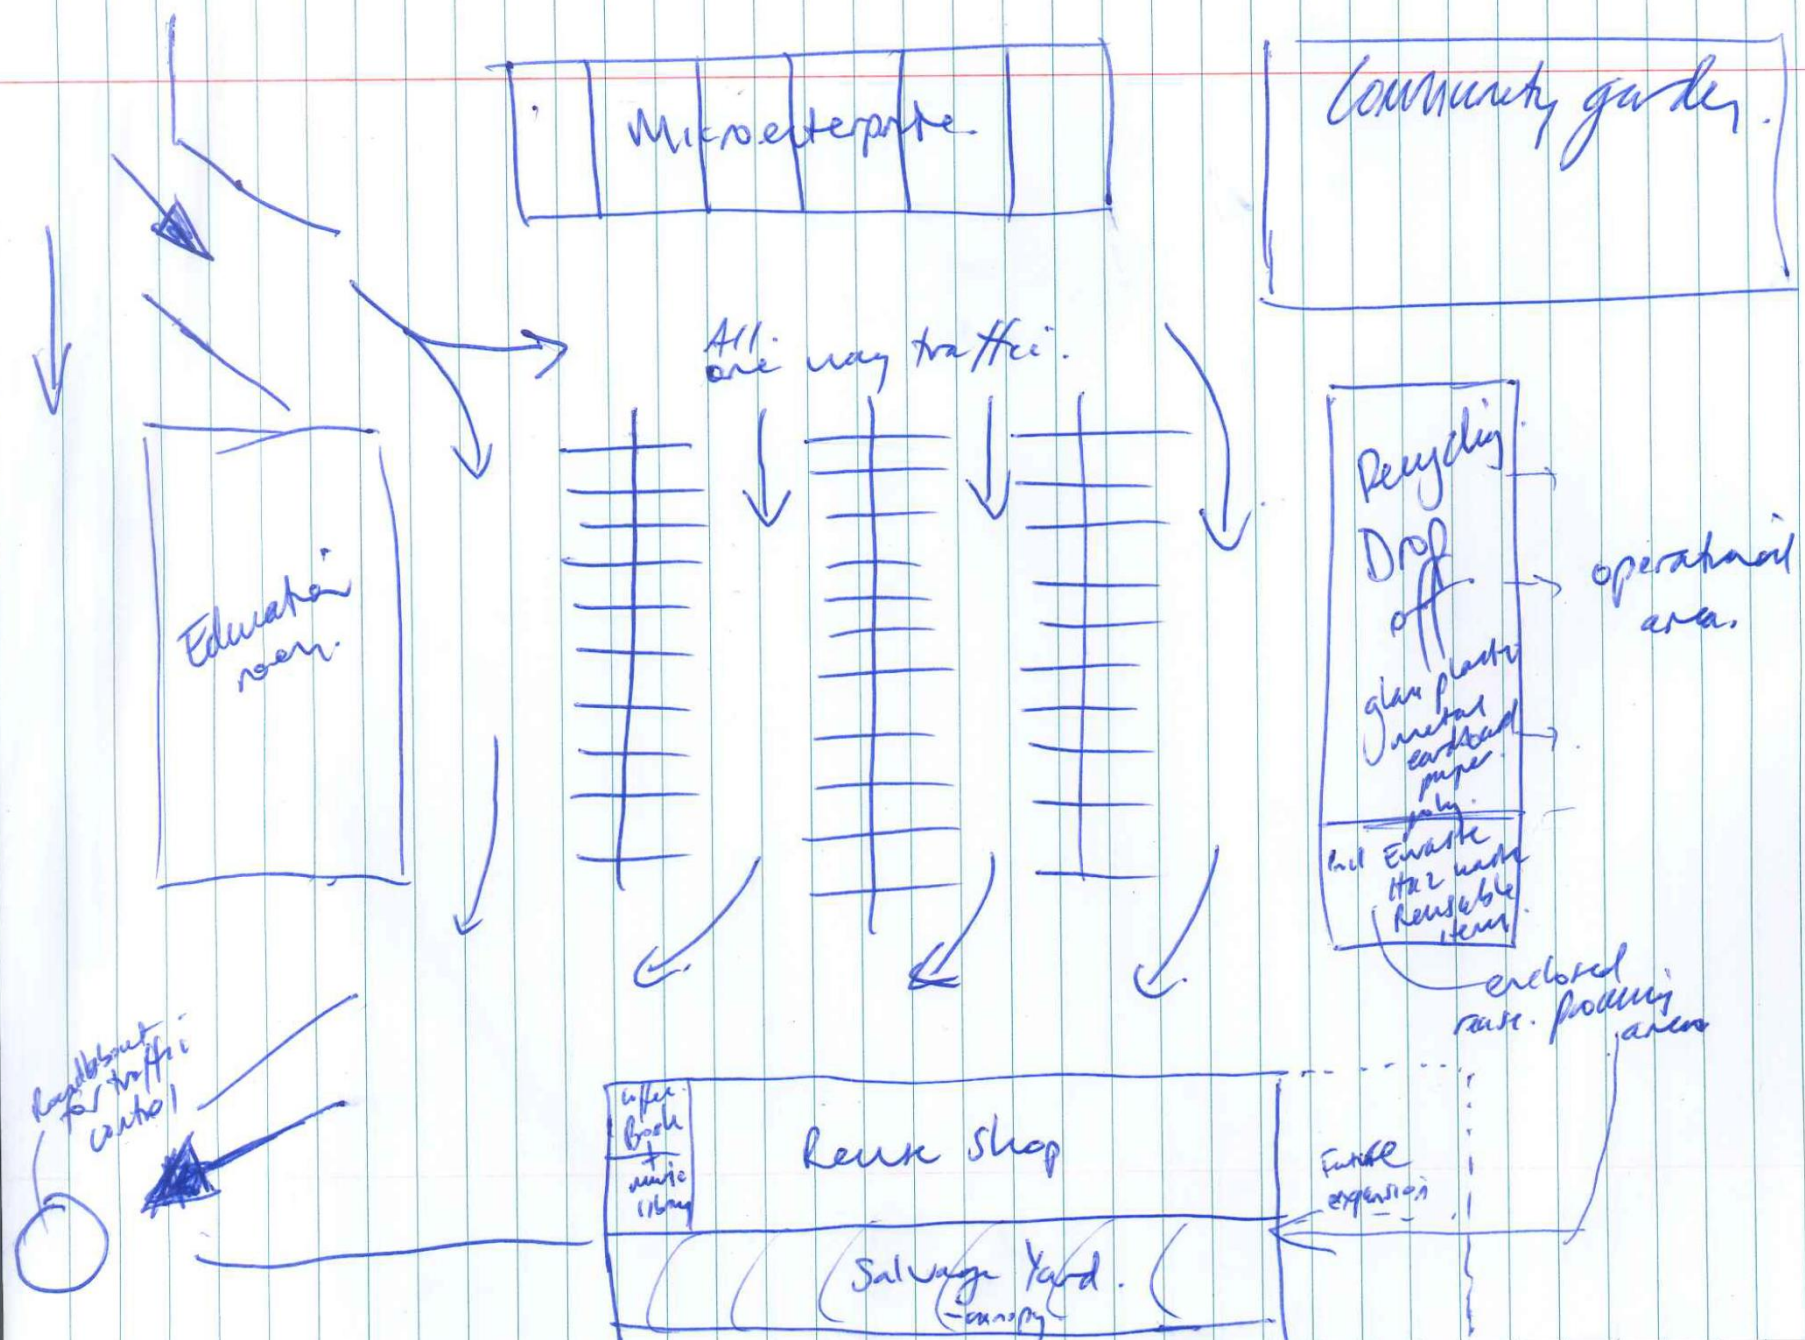 Microenterprise
Community garden.
All
one way traffic.
Recycling
Drop
off
glass plastic
metal
cardboard
paper.
poly.
Ewaste
Haz waste
Reusable
items.
operational
area.
Education
room.
enclosed
reuse. processing
area
Roundabout
for traffic
control
coffee.
Book
+
music
library
Reuse Shop
Future
expansion
Salvage Yard.
-canopy-